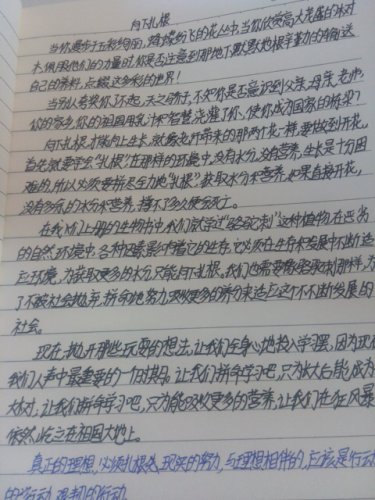 向下扎根
当你漫步于五彩绚丽,缤缤纷飞的花丛中,当你欣赏高大茂盛的林对
木,佩服他们的力量时,你是否注意到那地下默默地根辛勤的为输送
自己的养料,点缀这多彩的世界!
当别人夸奖你,不起,天之骄子,不知你是否意识到父亲,母亲,老师,
你的家乡,你的祖国用乳汁和智慧浇灌了你,使你成为国家的栋梁?
向下扎根才能向上生长,就像老师带来的那两个花一样,要做到开花,
首先就要学会"扎根"在那样的环境中,没有水分,没有营养,生长是十分困
难的,所以必须要拼尽全力地"扎根"获取水分和营养,如果直接开花,
没有多余的水分和营养,撑不了多久便会死亡。
在我们上册的生物书中,我们就学过"骆驼刺"这种植物,在恶劣
的自然环境中,各种因素影响着它的生存,它必须在生存和发展中不断适
应环境,为获取更多的水分,只能向下扎根。我们也需要像骆驼刺那样,为
了不被社会抛弃,拼命地努力,吸收更多的养分来适应这个不断发展的
社会。
现在,抛开那些玩耍的想法,让我们全身心地投入学习罢,因为现在
我们人声中最重要的一个时期。让我们拼命学习吧,只为长大后能成为
大树,让我们拼命学习吧,只为能吸收更多的营养,让我们在狂风暴
依然屹立在祖国大地上。
真正的理想,必须扎根于现实的努力,与理想相伴的,应该是行动
的行动